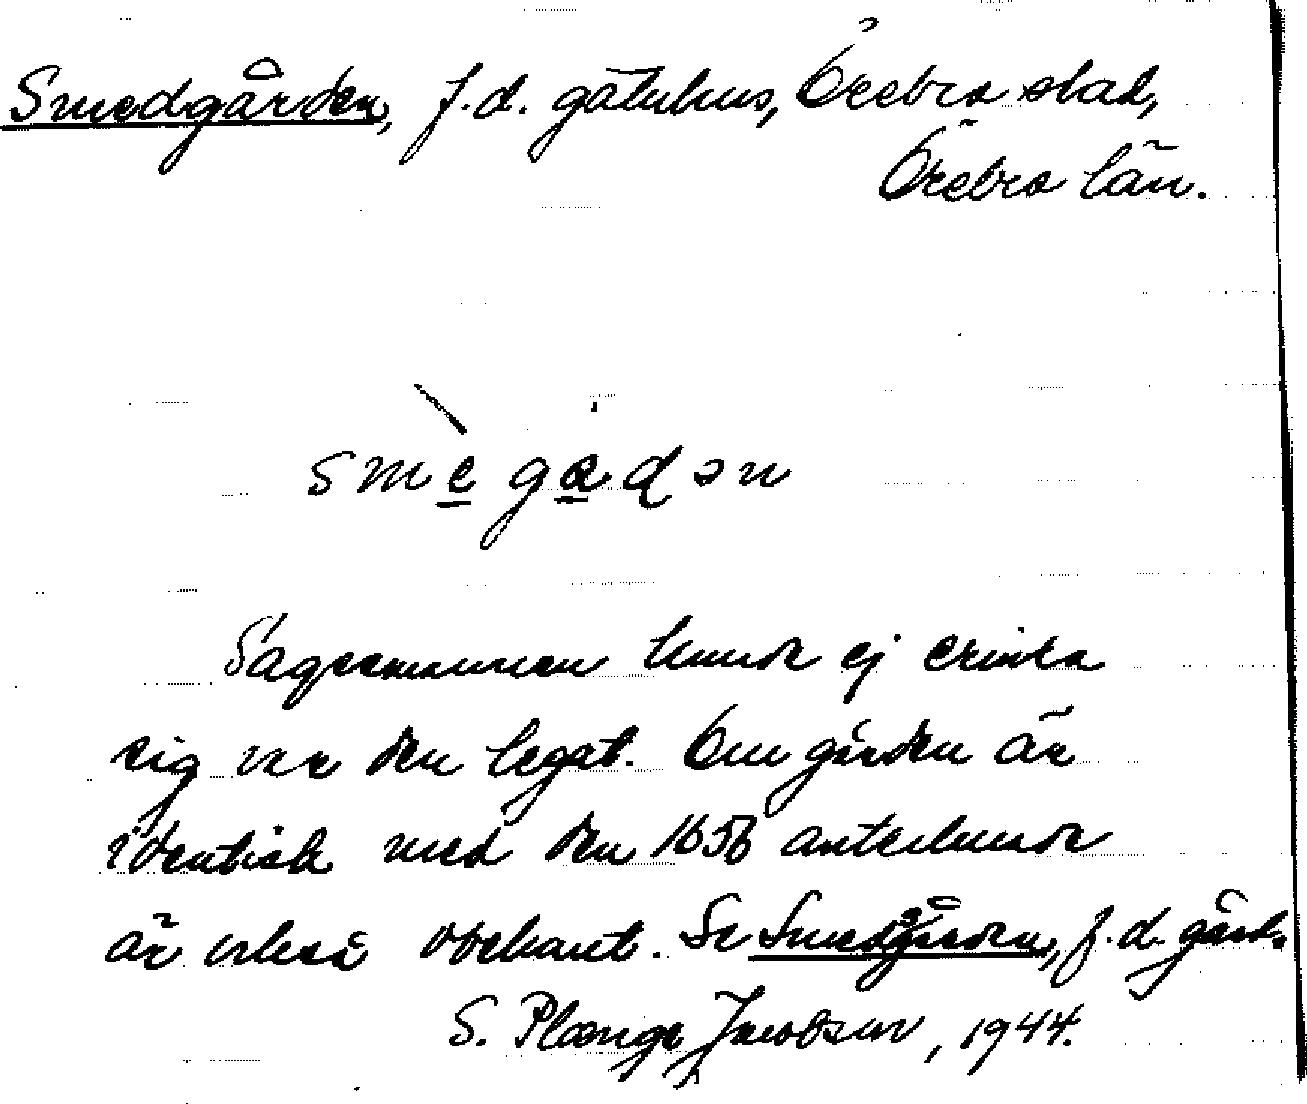 Smedgården, f.d. gatuhus, Örebro stad,
Örebro län.
smègạdən
Sagesmannen kunde ej erinra
sig var den legat. Om gården är
identisk med den 1656 antecknade
är också obekant. Se Smedgården, f.d. gård.
S. Plænge Jacobson, 1944.